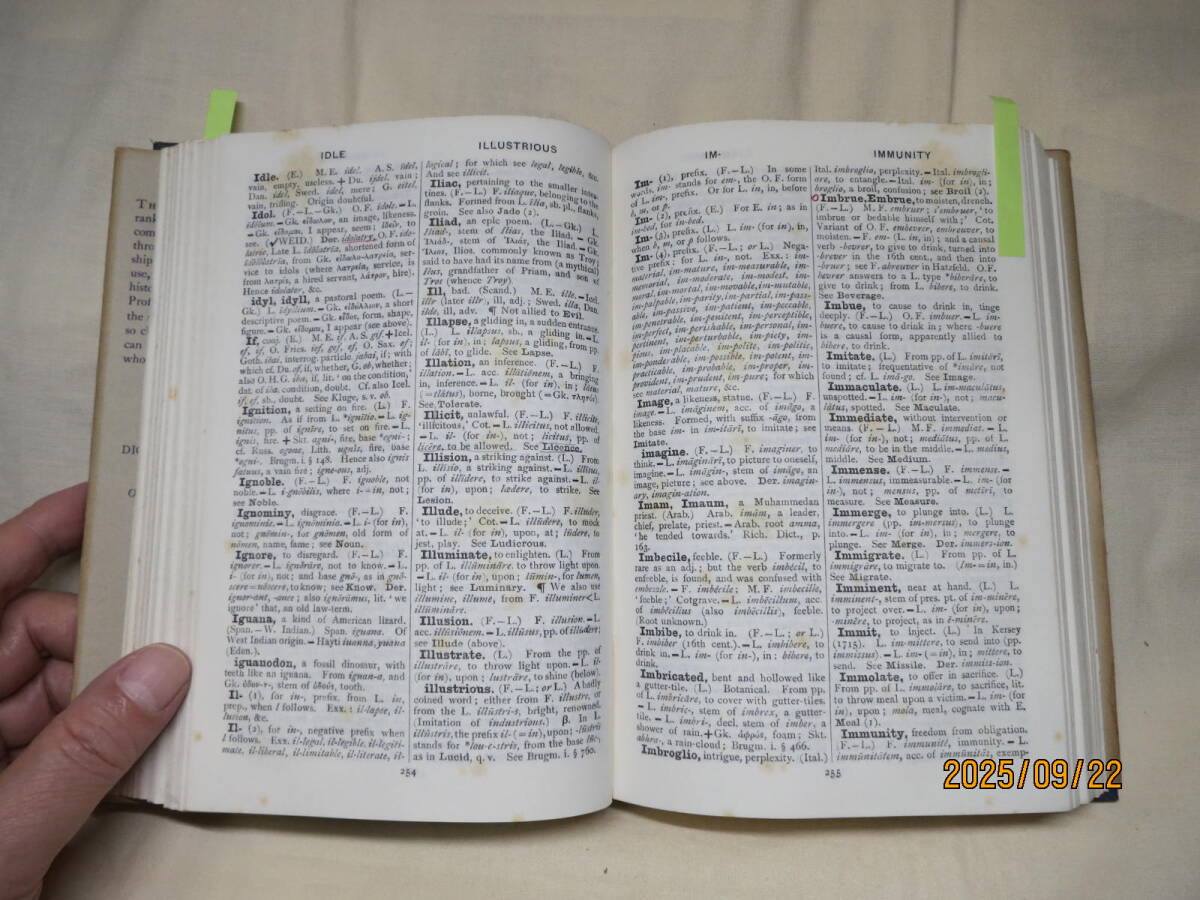 IDLE
ILLUSTRIOUS
Idle. (E.) M. E. idel. A. S. īdel,
vain, empty, useless. + Du. ijdel, vain;
Dan. idel, Swed. idel, mere; G. eitel,
vain, trifling. Origin doubtful.
Idol. (F. – L. – Gk.) O. F. idole. – L.
see. (√WEID.) Der. idolatry, O. F. ido-
service to idols (where λατρεία, service, is
Hence idolater, &c.
idyl, idyll, a pastoral poem. (L. –
Gk.) L. īdyllium. – Gk. εἰδύλλιον, a short
descriptive poem. – Gk. εἶδος, form, shape,
figure. – Gk. εἴδομαι, I appear (see above).
If, conj. (E.) M. E. if. A. S. gif. + Icel.
Goth. ibai, interrog. particle, jabai, if; with
which cf. Du. of, if, whether, G. ob, whether;
also O. H. G. iba, if, lit. 'on the condition,'
dat. of iba, condition, doubt. Cf. also Icel.
if, ef, sb., doubt. See Kluge, s. v. ob.
Ignition, a setting on fire. (L.) F.
ignition. As if from L. *ignītio. – L. ig-
nītus, pp. of ignīre, to set on fire. – L.
ignis, fire. + Skt. agni-, fire, base *egni-;
cf. Russ. ogone, Lith. ugnis, fire, base
*ogni-. Brugm. i. § 148. Hence also ignis
fatuus, a vain fire; igne-ous, adj.
Ignoble. (F. – L.) F. ignoble, not
noble. – L. i-gnōbilis, where i- = in, not;
see Noble.
Ignominy, disgrace. (F. – L.) F.
ignominie. – L. ignōminia. – L. i- (for in),
not; gnōmin-, for gnōmen, old form of
nōmen, name, fame; see Noun.
Ignore, to disregard. (F. – L.) F.
ignorer. – L. ignōrāre, not to know. – L.
i- (for in), not; and base gnō-, as in gnō-
scere = nōscere, to know; see Know. Der.
ignor-ant, -ance; also ignōrāmus, lit. 'we
ignore' that, an old law-term.
Iguana, a kind of American lizard.
(Span. – W. Indian.) Span. iguana. Of
West Indian origin. – Hayti iuanna, yuana
(Eden.).
iguanodon, a fossil dinosaur, with
teeth like an iguana. From iguan-a, and
Gk. ὀδον-τ-, stem of ὀδούς, tooth.
Il- (1), for in-, prefix, from L. in,
prep., when l follows. Exx.: il-lapse, il-
lusion, &c.
Il- (2), for in-, negative prefix when
l follows. Exx. il-legal, il-legible, il-legiti-
mate, il-liberal, il-limitable, il-literate, il-
logical; for which see legal, legible, &c.
And see illicit.
Iliac, pertaining to the smaller intes-
tines. (F. – L.) F. iliaque, belonging to the
flanks. Formed from L. īlia, sb. pl., flanks,
groin. See also Jade (2).
Iliad, an epic poem. (L. – Gk.) L.
Iliad-, stem of Ilias, the Iliad. – Gk.
Ἰλιάδ-, stem of Ἰλιάς, the Iliad. – Gk.
Ἴλιος, Ilios, commonly known as Troy;
said to have had its name from (a mythical)
Ilus, grandfather of Priam, and son of
Tros (whence Troy).
Ill, bad. (Scand.) M. E. ille. – Icel.
illr (later íllr), ill, adj.; Swed. illa, Dan.
ilde, ill, adv. ¶ Not allied to Evil.
Illapse, a gliding in, a sudden entrance.
(L.) L. illapsus, sb., a gliding in. – L.
il- (for in), in; lapsus, a gliding, from pp.
of lābī, to glide. See Lapse.
Illation, an inference. (F. – L.) F.
illation. – L. acc. illātiōnem, a bringing
in, inference. – L. il- (for in), in; lātus
(= tlātus), borne, brought (= Gk. τλητός).
See Tolerate.
Illicit, unlawful. (F. – L.) F. illicite,
'illicitous,' Cot. – L. illicitus, not allowed.
– L. il- (for in-), not; licitus, pp. of
licēre, to be allowed. See Licence.
Illision, a striking against. (L.) From
L. illīsio, a striking against. – L. illīsus,
pp. of illīdere, to strike against. – L. il-
(for in), upon; lædere, to strike. See
Lesion.
Illude, to deceive. (F. – L.) F. illuder,
'to illude;' Cot. – L. illūdere, to mock
at. – L. il- (for in), upon, at; lūdere, to
jest, play. See Ludicrous.
Illuminate, to enlighten. (L.) From
pp. of L. illūmināre, to throw light upon.
– L. il- (for in), upon; lūmin-, for lumen,
light; see Luminary. ¶ We also use
illumine, illume, from F. illuminer < L.
illūmināre.
Illusion. (F. – L.) F. illusion. – L.
acc. illūsiōnem. – L. illūsus, pp. of illūdere;
see Illude (above).
Illustrate. (L.) From the pp. of
illustrāre, to throw light upon. – L. il-
(for in), upon; lustrāre, to shine (below).
illustrious. (F. – L.; or L.) A badly
coined word; either from F. illustre, or
from the L. illūstri-s, bright, renowned.
(Imitation of industrious.) β. In L.
illūstris, the prefix il- (= in), upon; -lūstris
stands for *lou-c-stris, from the base (&c.
as in Lucid, q. v. See Brugm. i. § 760.
254
IM-
IMMUNITY
Im- (1), prefix. (F. – L.) In some
words, im- stands for em-, the O. F. form
of L. im-, prefix. Or for L. in, in, before
b, m, or p.
Im- (2), prefix. (E.) For E. in; as in
im-bed, for in-bed.
Im- (3), prefix. (L.) L. im- (for in), in,
when b, m, or p follows.
Im- (4), prefix. (F. – L.; or L.) Nega-
tive prefix; for L. in-, not. Exx.: im-
material, im-mature, im-measurable, im-
memorial, im-moderate, im-modest, im-
moral, im-mortal, im-movable, im-mutable,
im-palpable, im-parity, im-partial, im-pass-
able, im-passive, im-patient, im-peccable,
im-penetrable, im-penitent, im-perceptible,
im-perfect, im-perishable, im-personal, im-
pertinent, im-perturbable, im-piety, im-
pious, im-placable, im-polite, im-politic,
im-ponderable, im-possible, im-potent, im-
practicable, im-probable, im-proper, im-
provident, im-prudent, im-pure; for which
see material, mature, &c.
Image, a likeness, statue. (F. – L.) F.
image. – L. imāginem, acc. of imāgo, a
likeness. Formed, with suffix -āgo, from
the base im- in im-itārī, to imitate; see
Imitate.
imagine. (F. – L.) F. imaginer, to
think. – L. imāginārī, to picture to oneself,
imagine. – L. imāgin-, stem of imāgo, an
image, picture; see above. Der. imagin-
ary, imagin-ation.
Imam, Imaum, a Muhammedan
priest. (Arab.) Arab. imām, a leader,
chief, prelate, priest. – Arab. root amma,
'he tended towards.' Rich. Dict., p.
163.
Imbecile, feeble. (F. – L.) Formerly
rare as an adj.; but the verb imbécil, to
enfeeble, is found, and was confused with
embezzle. – F. imbécile; M. F. imbecille,
'feeble;' Cotgrave. – L. imbēcillum, acc.
of imbēcillus (also imbēcillis), feeble.
(Root unknown.)
Imbibe, to drink in. (F. – L.; or L.)
F. imbiber (16th cent.). – L. imbibere, to
drink in. – L. im- (for in-), in; bibere, to
drink.
Imbricated, bent and hollowed like
a gutter-tile. (L.) Botanical. From pp.
of L. imbricāre, to cover with gutter-tiles.
– L. imbric-, stem of imbrex, a gutter-
tile. – L. imbri-, decl. stem of imber, a
shower of rain. + Gk. ἀφρός, foam; Skt.
abhra-, a rain-cloud; Brugm. i. § 466.
Imbroglio, intrigue, perplexity. (Ital.)
Ital. imbroglio, perplexity. – Ital. imbrogli-
are, to entangle. – Ital. im- (for in), in;
broglio, a broil, confusion; see Broil (2).
Imbrue, Embrue, to moisten, drench.
(F. – L.) M. F. embruer; s'embruer, 'to
imbrue or bedabble himself with;' Cot.
Variant of O. F. embevrer, embreuver, to
moisten. – F. em- (L. in, in); and a causal
verb -bevrer, to give to drink, turned into
-brever in the 16th cent., and then into
-bruer; see F. abreuver in Hatzfeld. O. F.
bevrer answers to a L. type *biberāre, to
give to drink; from L. bibere, to drink.
See Beverage.
Imbue, to cause to drink in, tinge
deeply. (F. – L.) O. F. imbuer. – L. im-
buere, to cause to drink in; where -buere
is a causal form, apparently allied to
bibere, to drink.
Imitate. (L.) From pp. of L. imitārī,
to imitate; frequentative of *imāre, not
found; cf. L. imā-go. See Image.
Immaculate. (L.) L. im-maculātus,
unspotted. – L. im- (for in-), not; macu-
lātus, spotted. See Maculate.
Immediate, without intervention or
means. (F. – L.) M. F. immediat. – L.
im- (for in-), not; mediātus, pp. of L.
mediāre, to be in the middle. – L. medius,
middle. See Medium.
Immense. (F. – L.) F. immense. –
L. immensus, immeasurable. – L. im- (for
in-), not; mensus, pp. of mētīrī, to
measure. See Measure.
Immerge, to plunge into. (L.) L.
immergere (pp. im-mersus), to plunge
into. – L. im- (for in), in; mergere, to
plunge. See Merge. Der. immers-ion.
Immigrate. (L.) From pp. of L.
immigrāre, to migrate to. (Im- = in, in.)
See Migrate.
Imminent, near at hand. (L.) L.
imminent-, stem of pres. pt. of im-minēre,
to project over. – L. im- (for in), upon;
-minēre, to project, as in ē-minēre.
Immit, to inject. (L.) In Kersey
(1715). L. im-mittere, to send into (pp.
immissus). – L. im- (= in), in; mittere, to
send. See Missile. Der. immiss-ion.
Immolate, to offer in sacrifice. (L.)
From pp. of L. immolāre, to sacrifice, lit.
to throw meal upon a victim. – L. im- (for
in), upon; mola, meal, cognate with E.
Meal (1).
Immunity, freedom from obligation.
(F. – L.) F. immunité, immunity. – L.
immūnitātem, acc. of immūnitās, exemp-
255
2025/09/22